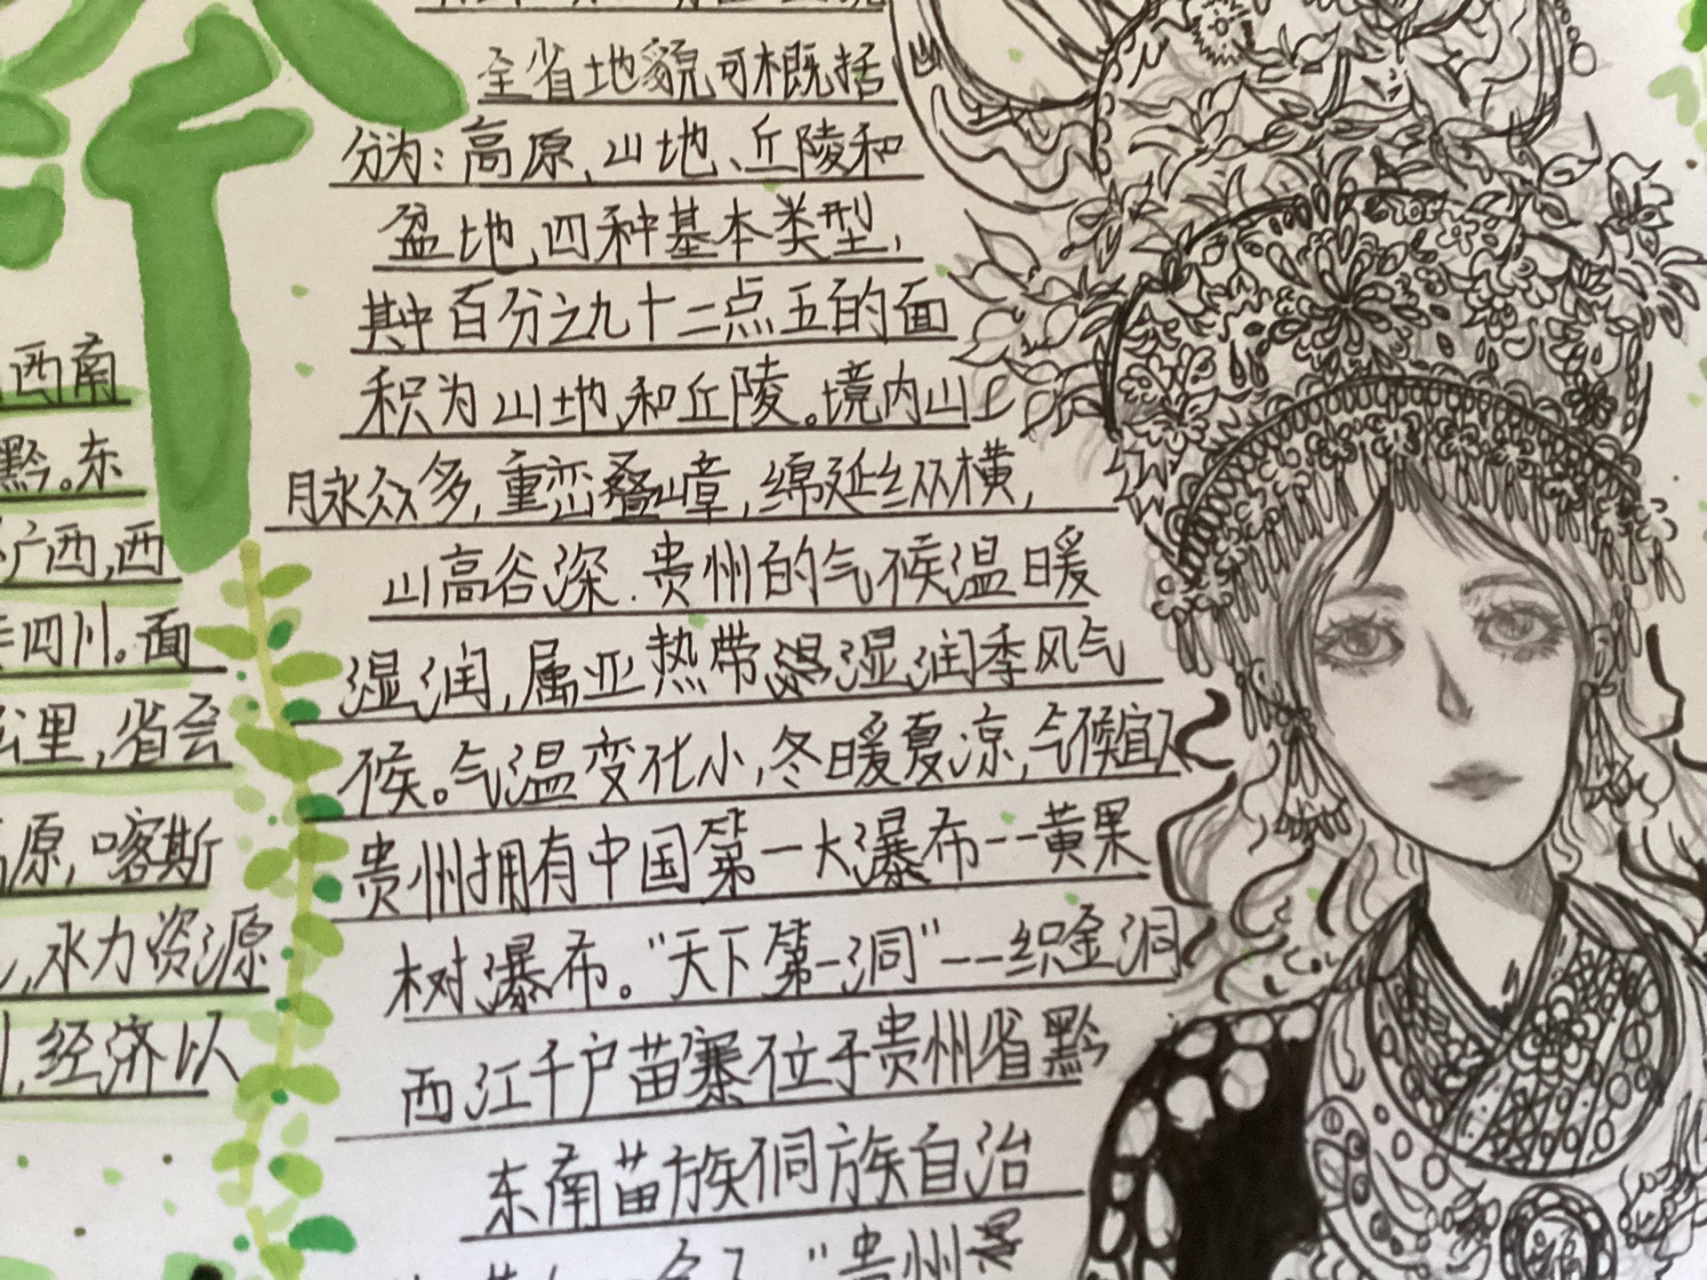 西南
黔。东
广西,西
四川。面
公里,省会
原,喀斯
水力资源
经济以
全省地貌可概括
分为:高原、山地、丘陵和
盆地,四种基本类型,
其中百分之九十二点五的面
积为山地和丘陵。境内山
脉众多,重峦叠嶂,绵延纵横,
山高谷深.贵州的气候温暖
湿润,属亚热带湿润季风气
候。气温变化小,冬暖夏凉,气候宜人
贵州拥有中国第一大瀑布--黄果
树瀑布。"天下第一洞"--织金洞
西江千户苗寨位于贵州省黔
东南苗族侗族自治
"贵州